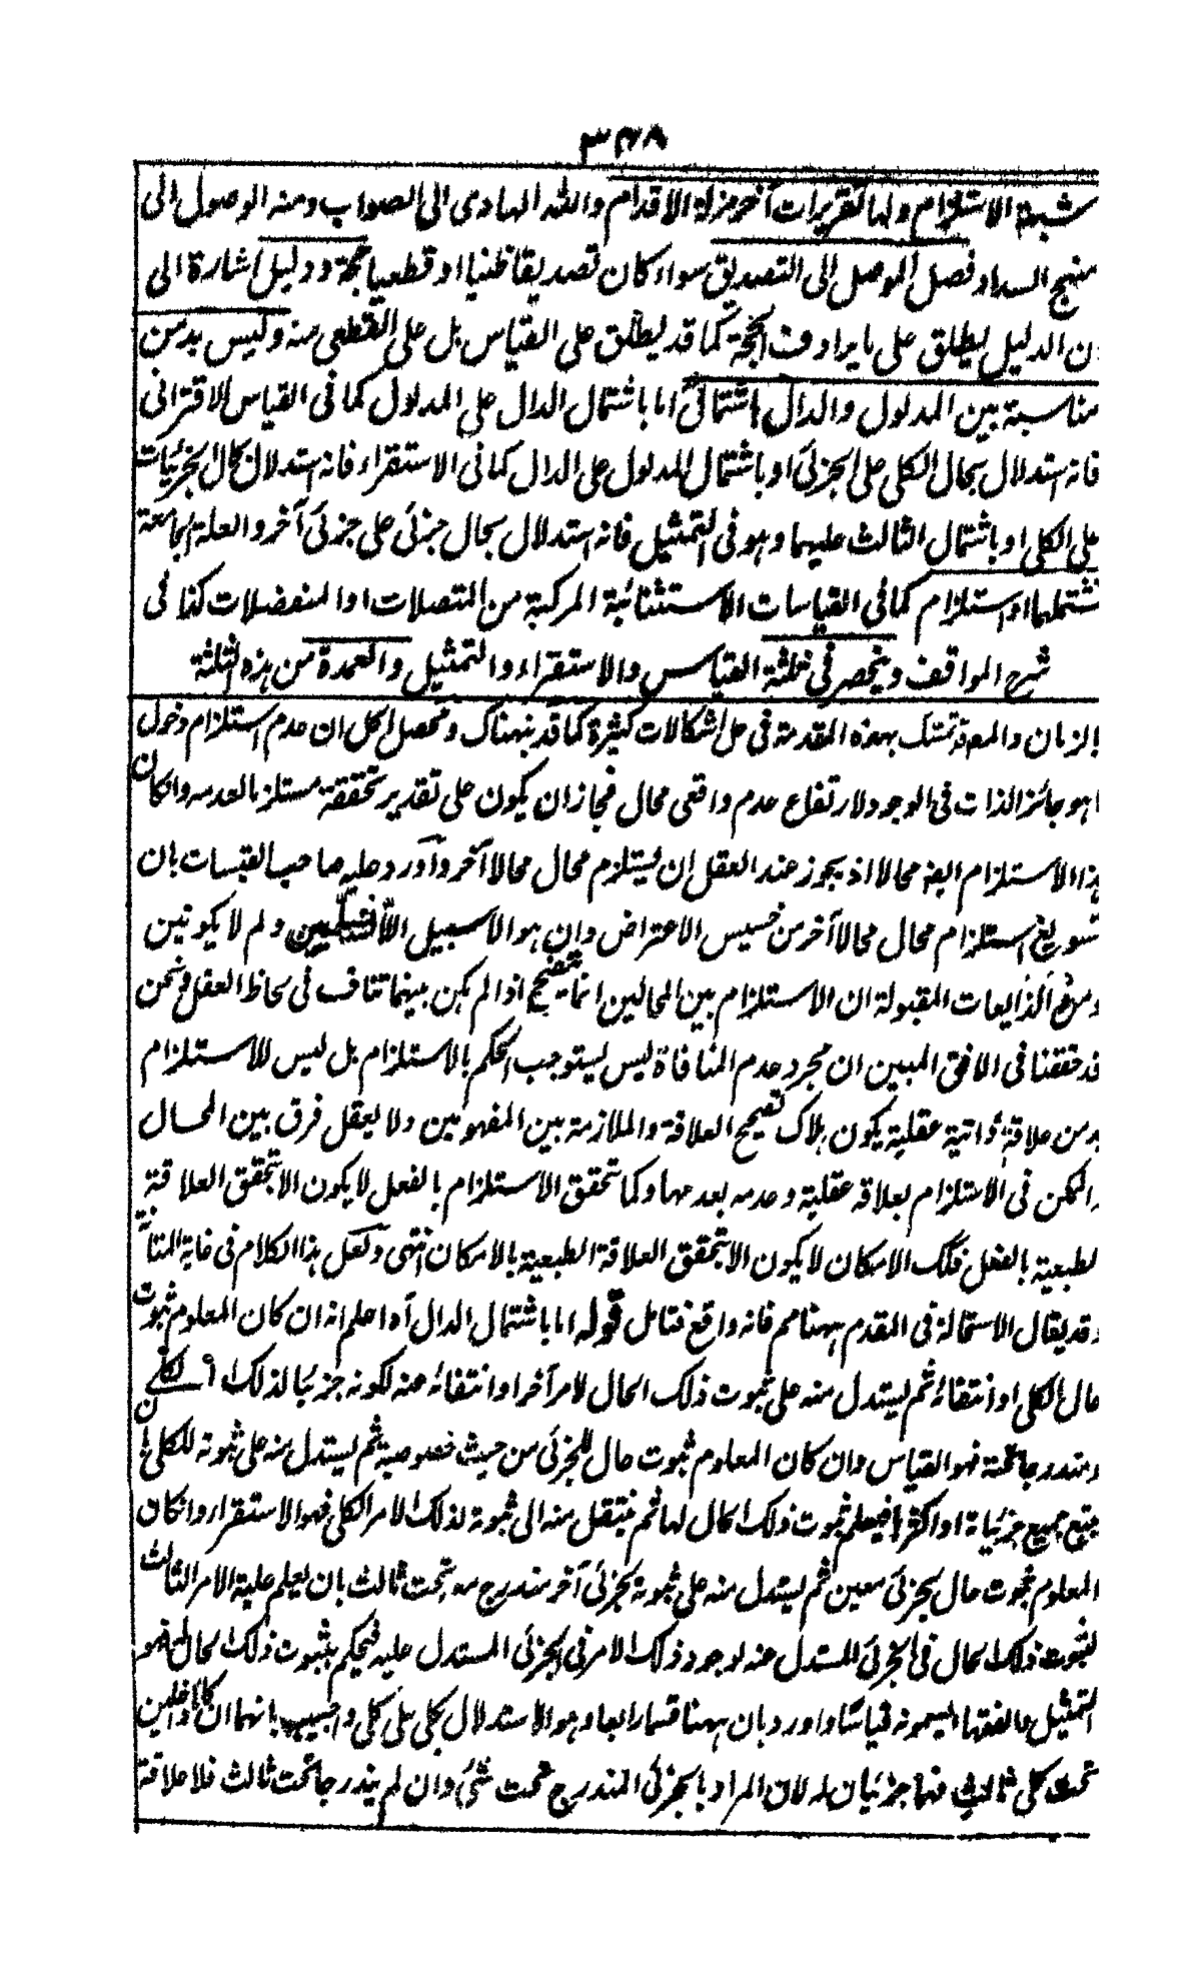 ٣٣٨
شبهة الاستلزام ولها تقريرات آخر مزلة الاقدام والله الهادى الى الصواب ومنه الوصول الى
منهج السداد فصل الموصل الى التصديق سواء كان تصديقا ظنيا او قطعيا حجة ودليل اشارة الى
ن الدليل يطلق على ما يرادف الحجة كما قد يطلق على القياس بل على القطعى منه وليس بد من
مناسبة بين المدلول والدال اشتمالى اما باشتمال الدال على المدلول كما فى القياس الاقترانى
فانه استدلال بحال الكلى على الجزئى او باشتمال المدلول على الدال كما فى الاستقراء فانه استدلال بحال الجزئيات
على الكلى او باشتمال الثالث عليهما وهو فى التمثيل فانه استدلال بحال جزئى على جزئى آخر والعلة الجامعة
تشتملهما او استلزام كما فى القياسات الاستثنائية المركبة من المتصلات او المنفصلات كذا فى
شرح المواقف وينحصر فى ثلثة القياس والاستقراء والتمثيل والعمدة من هذه الثلثة
الزمان والمعدة تمسك بهذه المقدمة فى حل اشكالات كثيرة كما قد ينهناك ومحصل الحل ان عدم استلزام دخول
ا هو جائز الذات فى الوجود لارتفاع عدم واقعى محال فجاز ان يكون على تقدير تحققه مستلزما لعدمه وان كان
هذا الاستلزام ايضا محالا اذ يجوز عند العقل ان يستلزم محال محالا آخر واورد عليه صاحب القبسات بان
تسويغ استلزام محال محالا آخر من خسيس الاعتراض وان هو الا سبيل ولم لا يكونين
ومن الذايعات المقبولة ان الاستلزام بين المحالين انما يتصحح اذا لم يكن بينهما تناف فى لحاظ العقل ونحن
قد حققنا فى الافق المبين ان مجرد عدم المنافاة ليس يستوجب الحكم بالاستلزام بل ليس للاستلزام
بد من علاقة ذاتية عقلية يكون بلاك تصحيح العلاقة والملازمة بين المفهومين ولا يعقل فرق بين المحال
والممكن فى الاستلزام بعلاقة عقلية وعدمه بعدمها وكما تحقق الاستلزام بالفعل لا يكون الا بتحقق العلاقة
لطبعية بالفعل فكك الامكان لا يكون الا بتحقق العلاقة الطبعية بالامكان انتهى ولعل هذا الكلام فى غاية المتانة
وقد يقال الاستحالة فى المقدم ههنا مم فانه واقع فتامل قوله اما باشتمال الدال آه اعلم انه ان كان المعلوم ثبوت
حال الكلى او انتفائه ثم يستدل منه على ثبوت ذلك الحال لامر آخر او انتفائه عنه لكونه جزئيا لذلك الكلى
ومندرجا تحته فهو القياس وان كان المعلوم ثبوت حال للجزئى من حيث خصوصية ثم يستدل منه على ثبوته للكلى بان
يتبع جميع جزئياته او اكثرها فيعلم ثبوت ذلك الحال لها ثم ينتقل منه الى ثبوته لذلك الامر الكلى فهو الاستقراء وان كان
المعلوم ثبوت حال لجزئى معين ثم يستدل منه على ثبوته لجزئى آخر مندرج معه تحت ثالث بان يعلم علية الامر الثالث
لثبوت ذلك الحال فى الجزئى المستدل عنه لوجود ذلك الامر فى الجزئى المستدل عليه فيحكم بثبوت ذلك الحال له فهو
التمثيل والفقهاء يسمونه قياسا واورد بان ههنا قسما رابعا وهو الاستدلال بكلى على كلى واجيب بانهما ان كانا داخلين
تحت كلى ثالث فهما جزئيان له لان المراد بالجزئى المندرج تحت شئ وان لم يندرجا تحت ثالث فلا علاقة